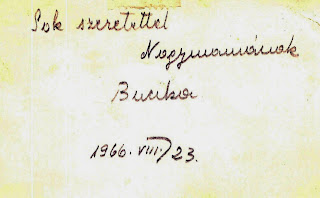 Sok szeretettel
Nagymamának
Bucika
1966. VIII. 23.